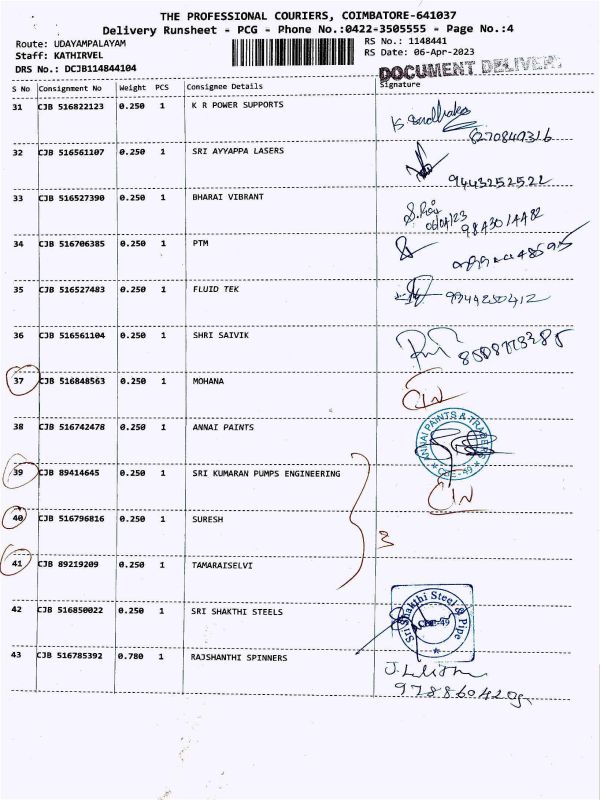 THE PROFESSIONAL COURIERS, COIMBATORE-641037
Delivery Runsheet - PCG - Phone No.:0422-3505555 - Page No.:4
Route: UDAYAMPALAYAM
RS No.: 1148441
Staff: KATHIRVEL
RS Date: 06-Apr-2023
DRS No.: DCJB114844104
DOCUMENT DELIVERY
S No Consignment No Weight PCS Consignee Details Signature
31 CJB 516822123 0.250 1 K R POWER SUPPORTS
32 CJB 516561107 0.250 1 SRI AYYAPPA LASERS
9443252522
33 CJB 516527390 0.250 1 BHARAI VIBRANT
06/04/23
9843014482
34 CJB 516706385 0.250 1 PTM
35 CJB 516527483 0.250 1 FLUID TEK
9944250412
36 CJB 516561104 0.250 1 SHRI SAIVIK
37 CJB 516848563 0.250 1 MOHANA
CIN
38 CJB 516742478 0.250 1 ANNAI PAINTS
ANNAI PAINTS & TRADERS
CBE-49
39 CJB 89414645 0.250 1 SRI KUMARAN PUMPS ENGINEERING
CIN
40 CJB 516796816 0.250 1 SURESH
3
41 CJB 89219209 0.250 1 TAMARAISELVI
42 CJB 516850022 0.250 1 SRI SHAKTHI STEELS
Sri Shakthi Steel & Pipe
CBE-49
43 CJB 516785392 0.780 1 RAJSHANTHI SPINNERS